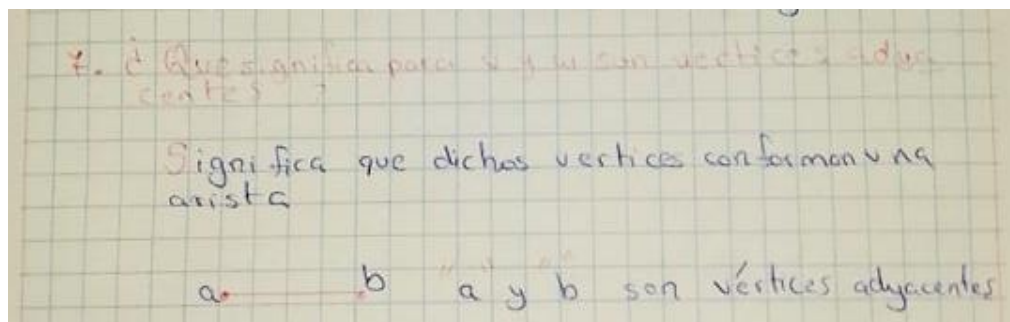 7. ¿ Que significa para v y w son vertices adya
centes ?
Significa que dichos vertices conforman una
arista
a b "a" y "b" son vértices adyacentes